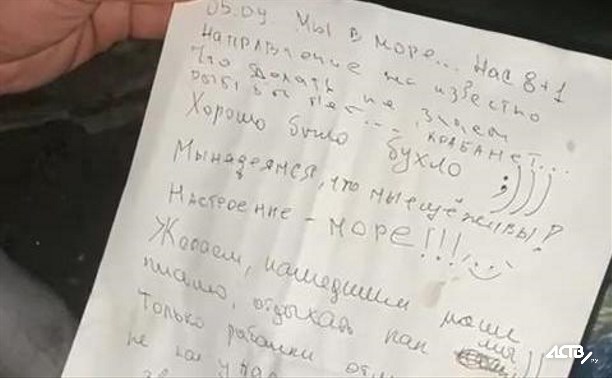 05.09 Мы в море... Нас 8+1
Направление не известно
Что делать не знаем
рыбы нет... краба нет...
Хорошо было бухло ;))))
Мы надеямся, что мы ещё живы?
Настроение - МОРЕ!!!
Желаем, нашедшим наше
письмо, отдыхать как мы
Только рыбалки
не
АСТВ.РУ